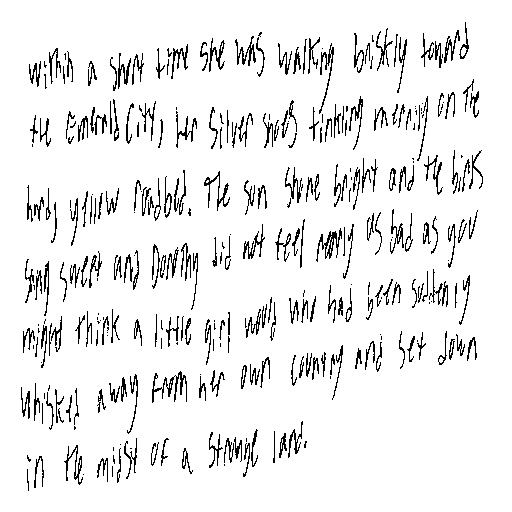 within a short time she was walking briskly toward
the Emerald City, her Silver Shoes tinkling merrily on the
hard, yellow roadbed. The sun shone bright and the birds
sang sweet and Dorothy did not feel nearly as bad as you
might think a little girl would who had been suddenly
whisked away from her own country and set down
in the midst of a strange land.